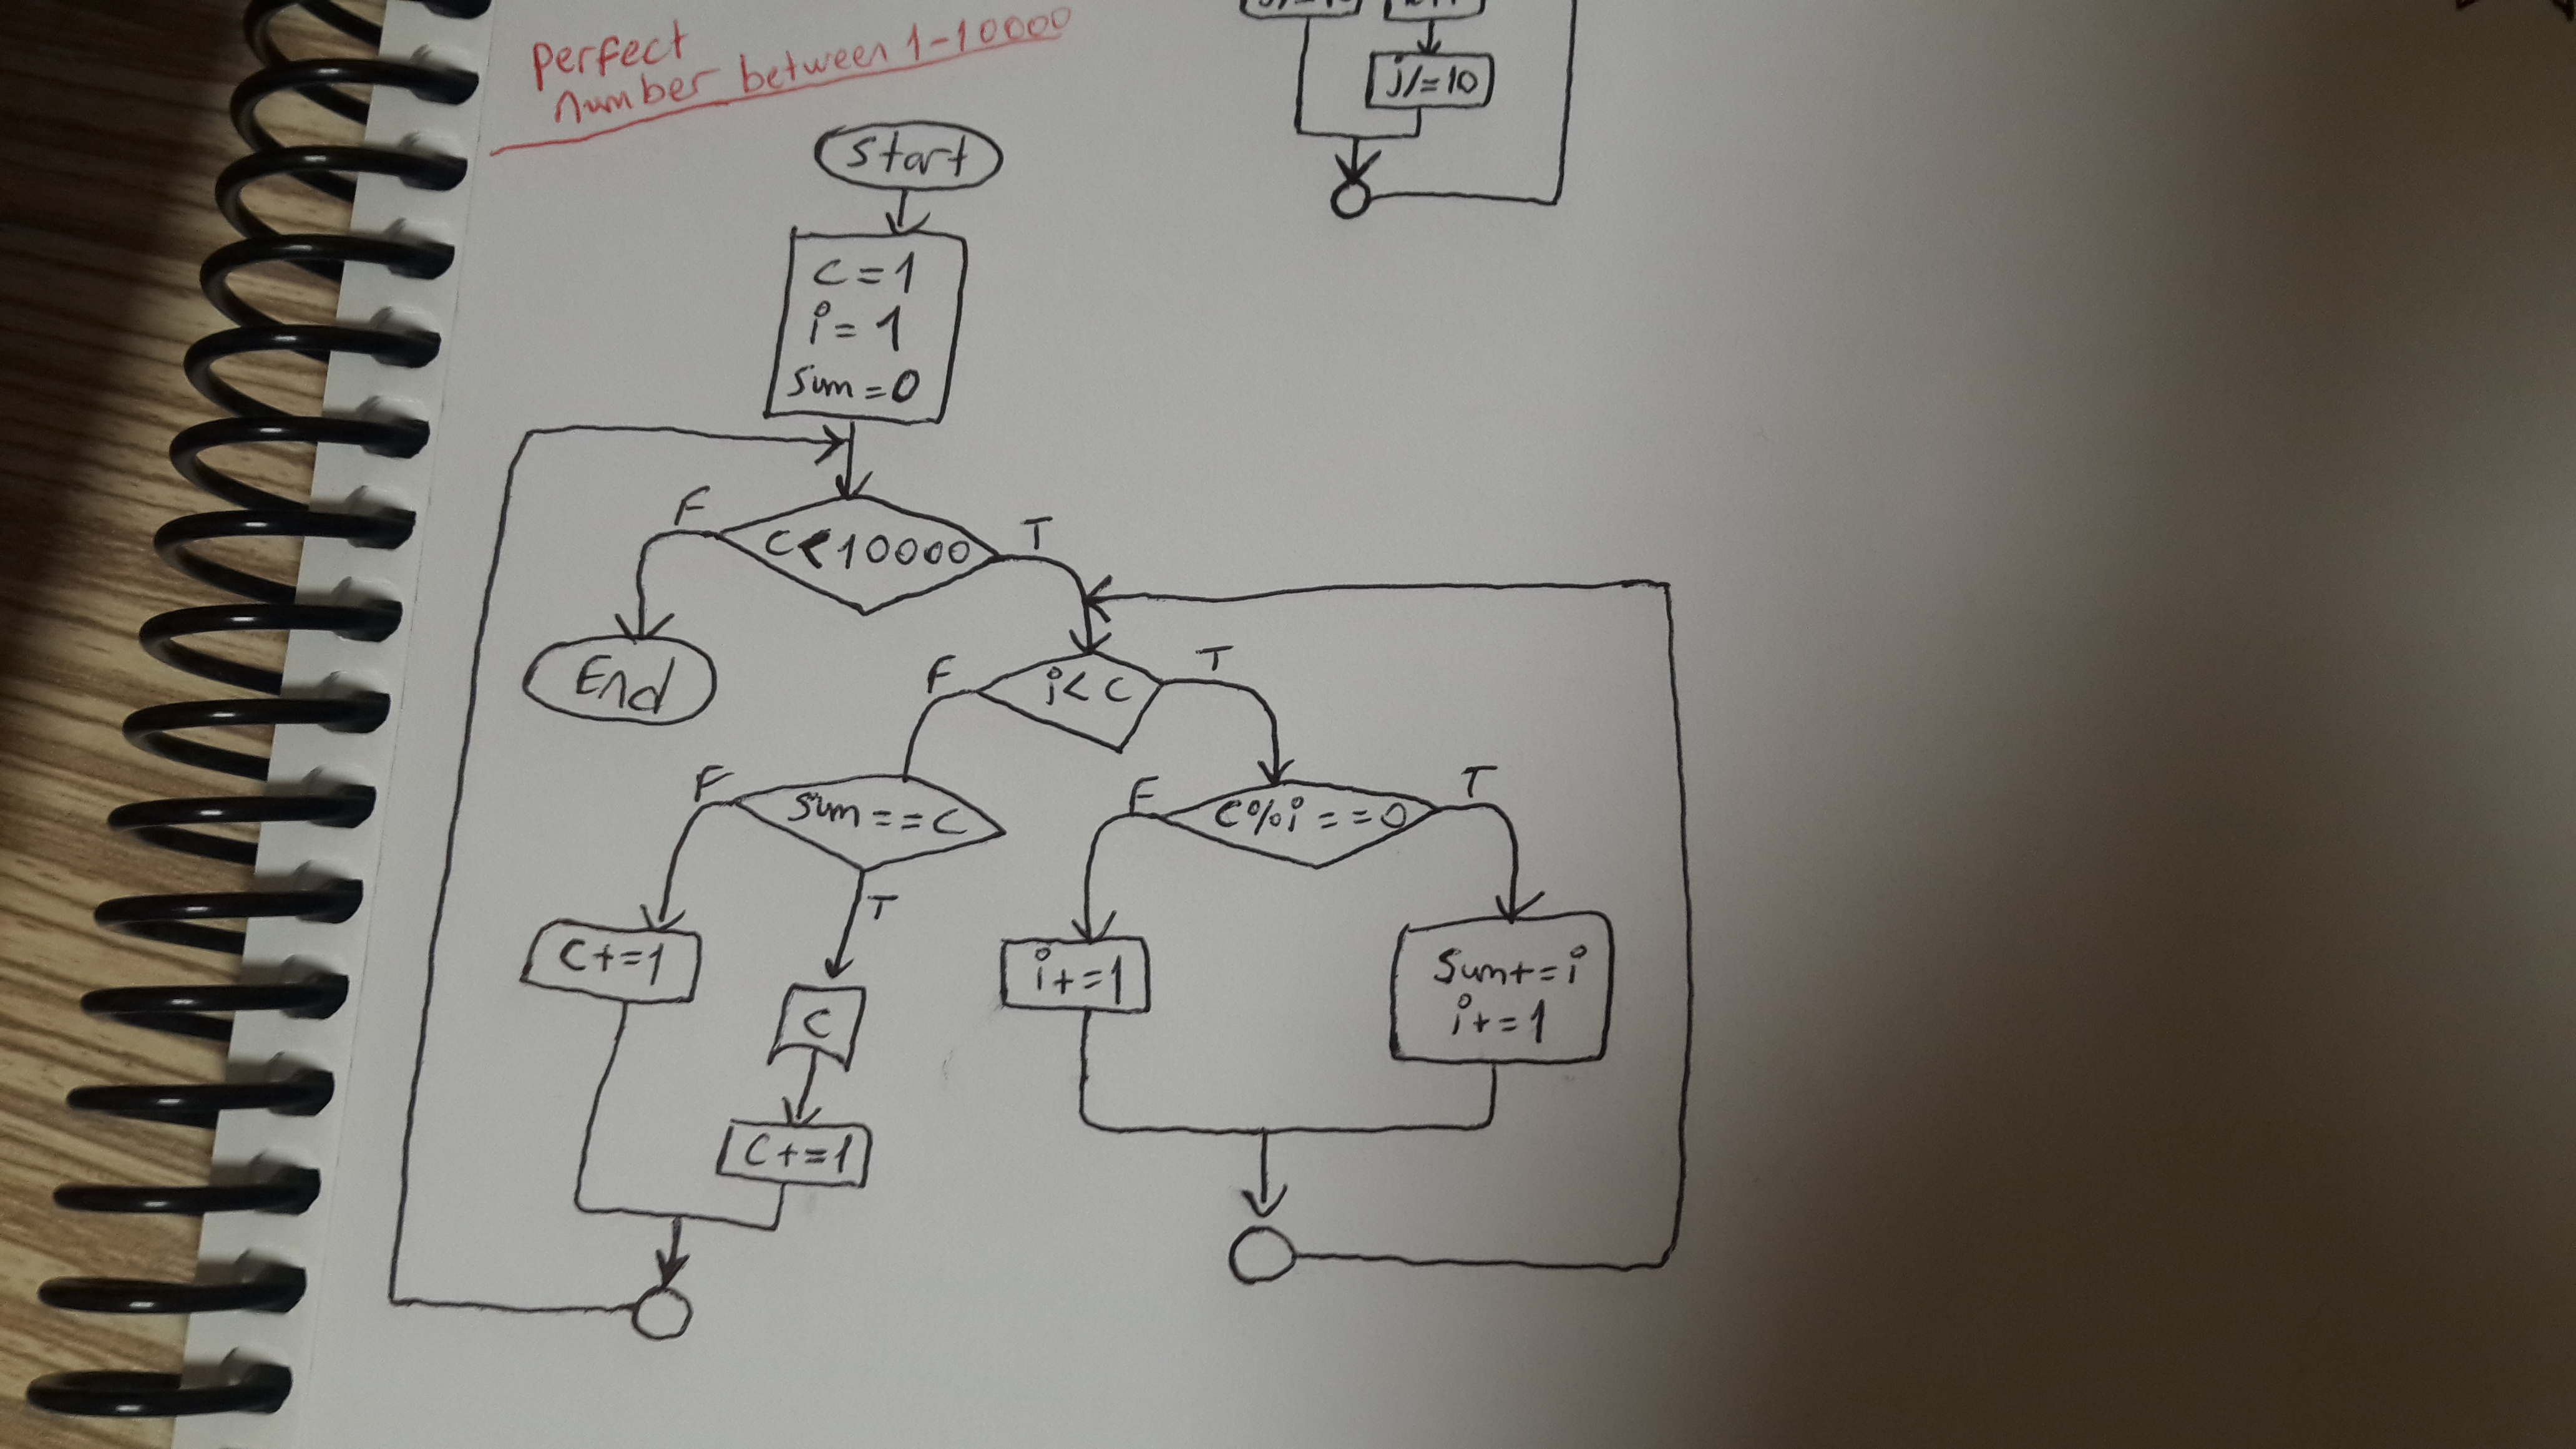 perfect
number between 1-10000
j/=10
Start
C=1
i=1
Sum=0
F
C<10000
T
End
F
i<C
T
F
Sum==C
T
F
C%i==0
T
C+=1
C
C+=1
i+=1
Sum+=i
i+=1